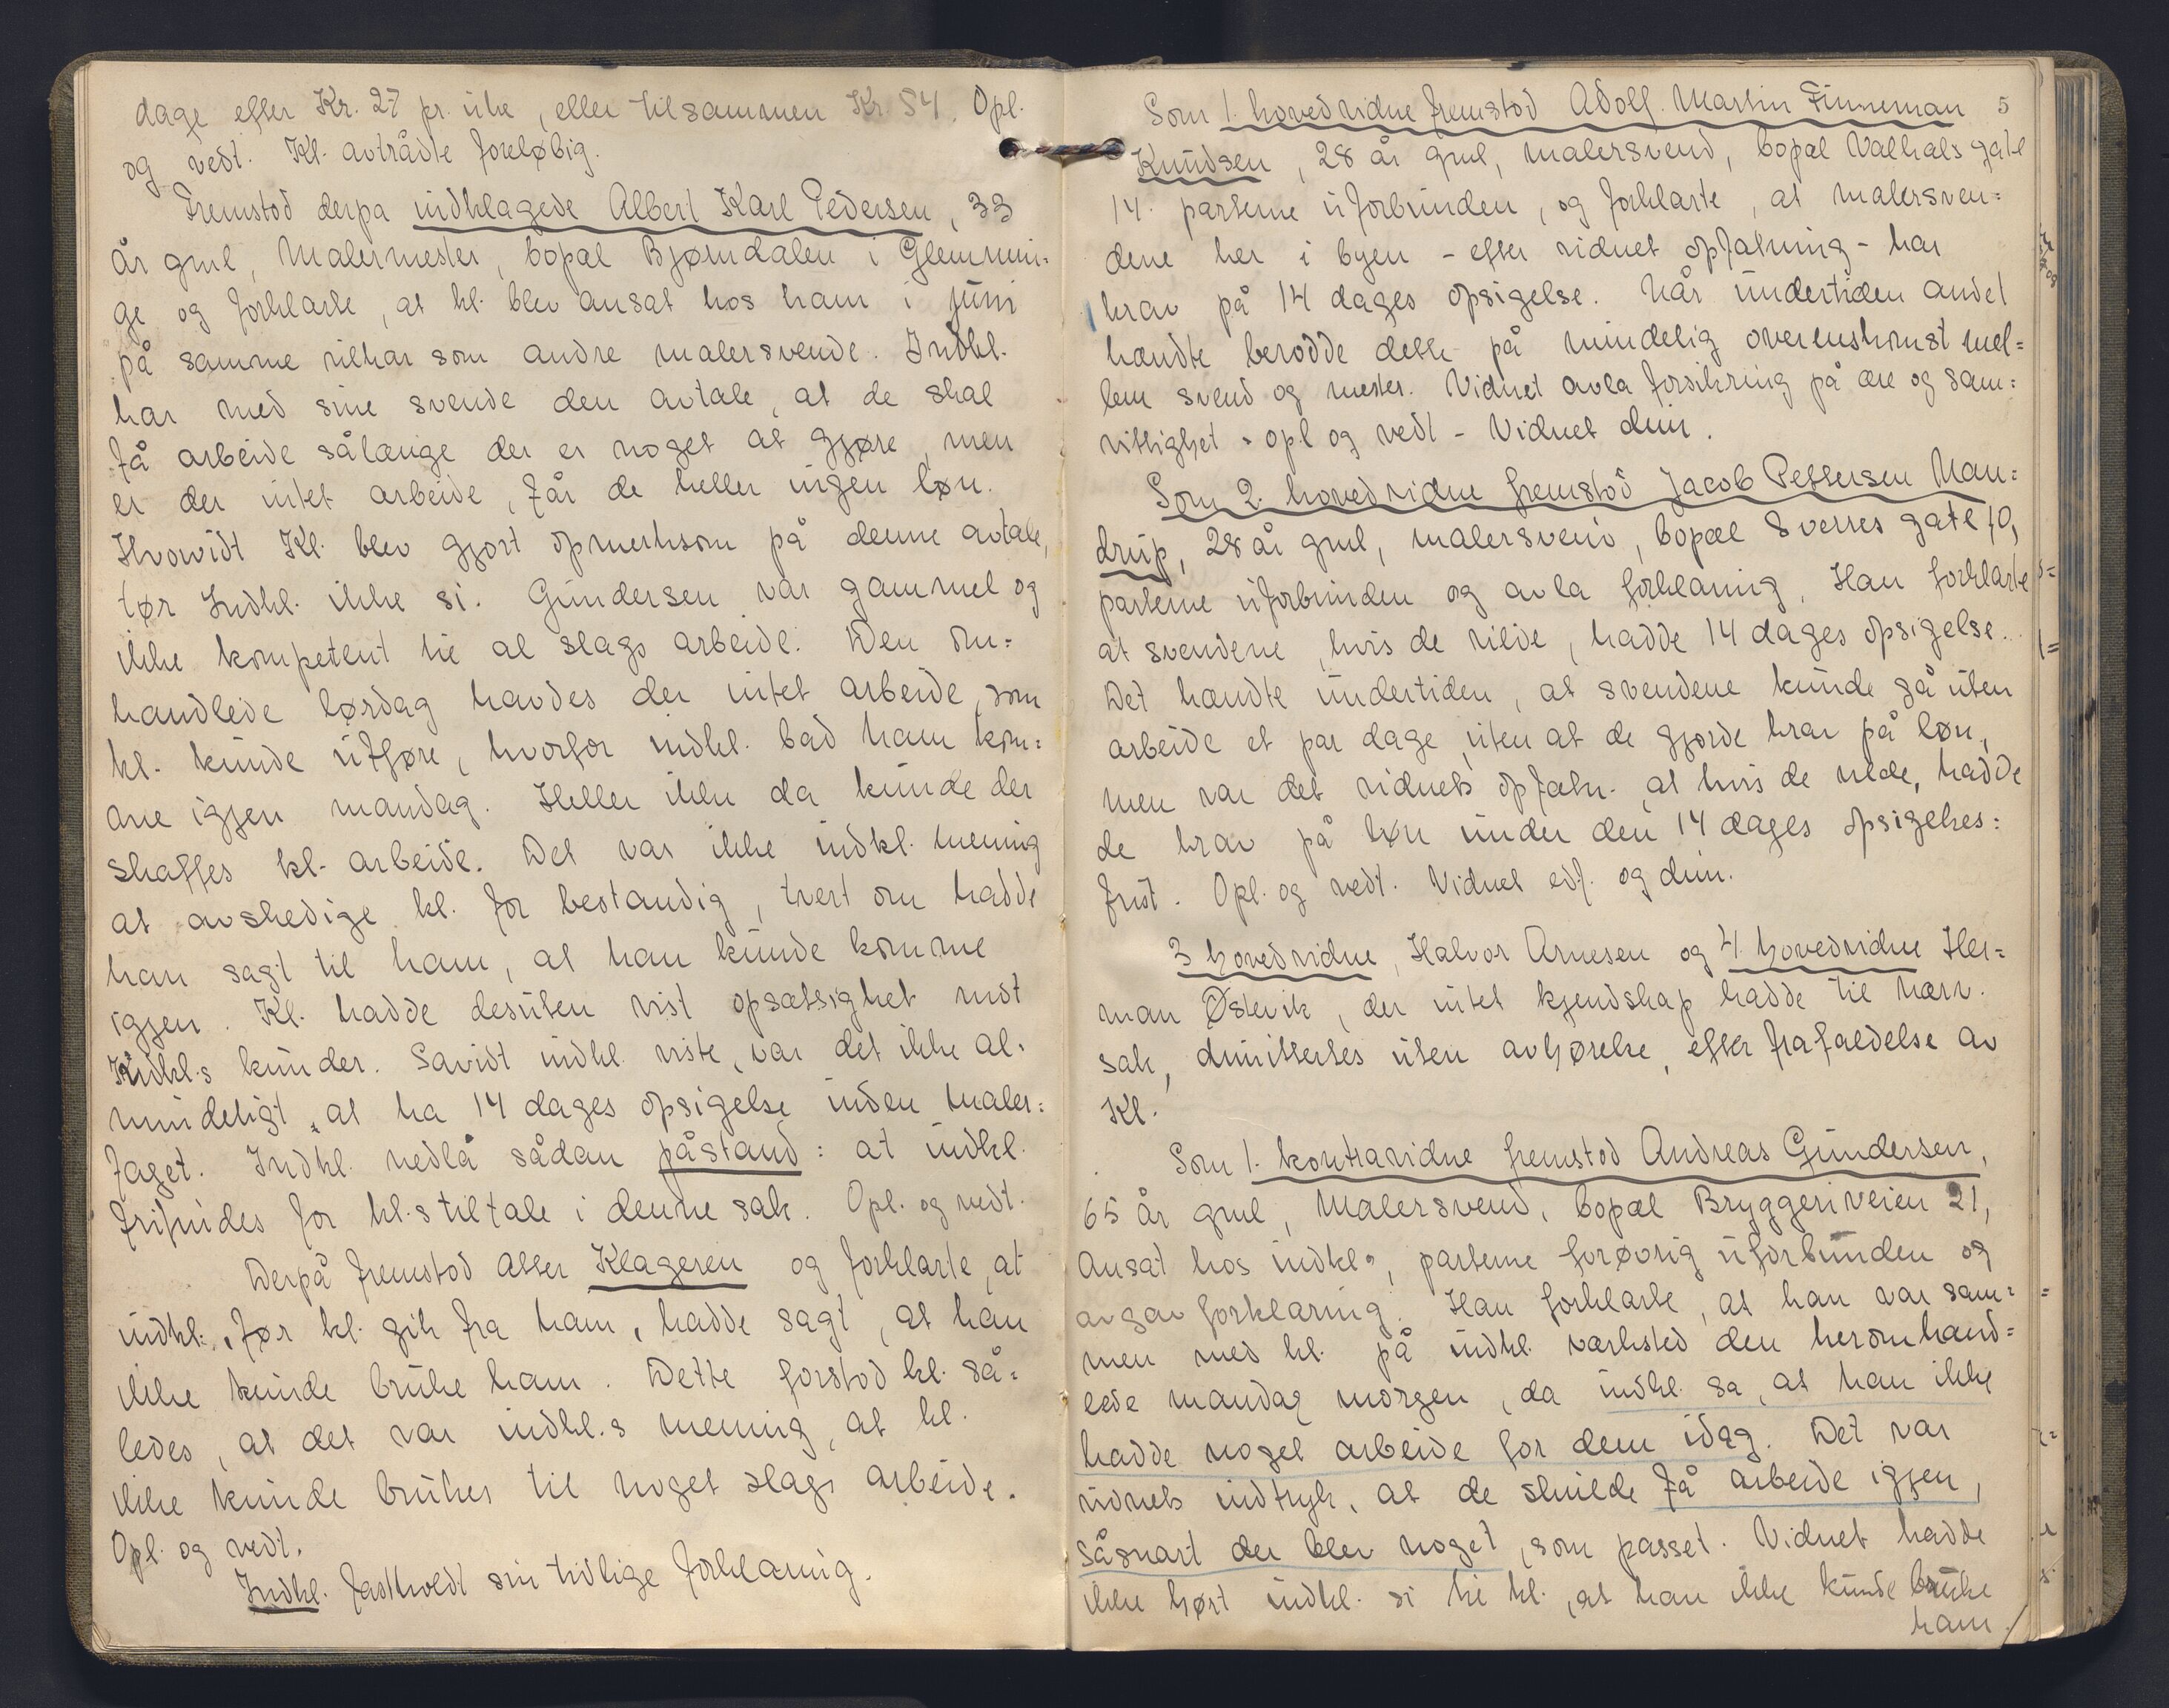 dage efter Kr. 27 pr. uke, eller tilsammen Kr 54. Opl.
og vedt. Kl. avtrådte foreløbig.
Fremstod derpa indklagede Albert Karl Pedersen, 33
år gml, Malermester, bopæl Bjørndalen i Glemmin=
ge og forklarte, at kl. blev ansat hos ham i juni
på samme vilkar som andre malersvende. Indkl.
har med sine svende den avtale, at de skal
få arbeide sålænge der er noget at gjøre, men
er der intet arbeide, får de heller ingen løn.
Hvorvidt Kl. blev gjort opmerksom på denne avtale,
tør Indkl. ikke si. Gundersen var gammel og
ikke kompetent til al slags arbeide. Den om=
handlede lørdag havdes der intet arbeide, som
kl. kunde utføre, hvorfor indkl. bad ham kom=
me igjen mandag. Heller ikke da kunde der
skaffes kl. arbeide. Det var ikke indkl. mening
at avskedige kl. for bestandig, tvert om hadde
han sagt til ham, at han kunde komme
igjen. Kl. hadde desuten vist opsætsighet mot
Indkl.s kunder. Savidt indkl. viste, var det ikke al=
mindeligt, at ha 14 dages opsigelse inden maler=
faget. Indkl. nedlå sådan påstand: at indkl.
frifindes for kl.s tiltale i denne sak. Opl. og vedt.
Derpå fremstod atter Klageren og forklarte, at
indkl., før kl. gik fra ham, hadde sagt, at han
ikke kunde bruke ham. Dette forstod kl. så=
ledes, at det var indkl.s mening, at kl.
ikke kunde brukes til noget slags arbeide.
Opl. og vedt.
Indkl. fastholdt sin tidlige forklaring.
Som 1. hovedvidne fremstod Adolf Martin Finneman 5
Knudsen, 28 år gml, malersvend, bopæl Valhals gate
14. parterne uforbunden, og forklarte, at malersven=
dene her i byen - efter vidnet opfatning - har
krav på 14 dages opsigelse. Når undertiden andet
hændte berodde dette på mindelig overenskomst mel=
lem svend og mester. Vidnet avla forsikring på ære og sam=
vittighet - opl og vedt - Vidnet dim.
Som 2. hovedvidne fremstod Jacob Pettersen Man=
drup, 28 år gml, malersvend, bopæl Sverres gate 10,
parterne uforbunden og avla forklaring. Han forklarte
at svendene, hvis de vilde, hadde 14 dages opsigelse.
Det hændte undertiden, at svendene kunde gå uten
arbeide et par dage, uten at de gjorde krav på løn,
men var det vidnets opfatn. at hvis de vilde, hadde
de krav på løn under den 14 dages opsigelses=
frist. Opl. og vedt. Vidnet edf. og dim.
3 hovedvidne, Halvor Arnesen og 4 hovedvidne Her=
man Østevik, der intet kjendskap hadde til nærv.
sak, dimitteres uten avhørelse, efter frafaldelse av
Kl.
Som 1. kontravidne fremstod Andreas Gundersen,
65 år gml, Malersvend, bopæl Bryggeriveien 21,
Ansat hos indkl., parterne forøvrig uforbunden og
avgav forklaring. Han forklarte, at han var sam=
men med kl. på indkl. værksted den heromhand=
lede mandag morgen, da indkl. sa, at han ikke
hadde noget arbeide for dem idag. Det var
vidnets indtryk, at de skulde få arbeide igjen,
såsnart der blev noget, som passet. Vidnet hadde
ikke hørt indkl. si til kl., at han ikke kunde bruke
ham.